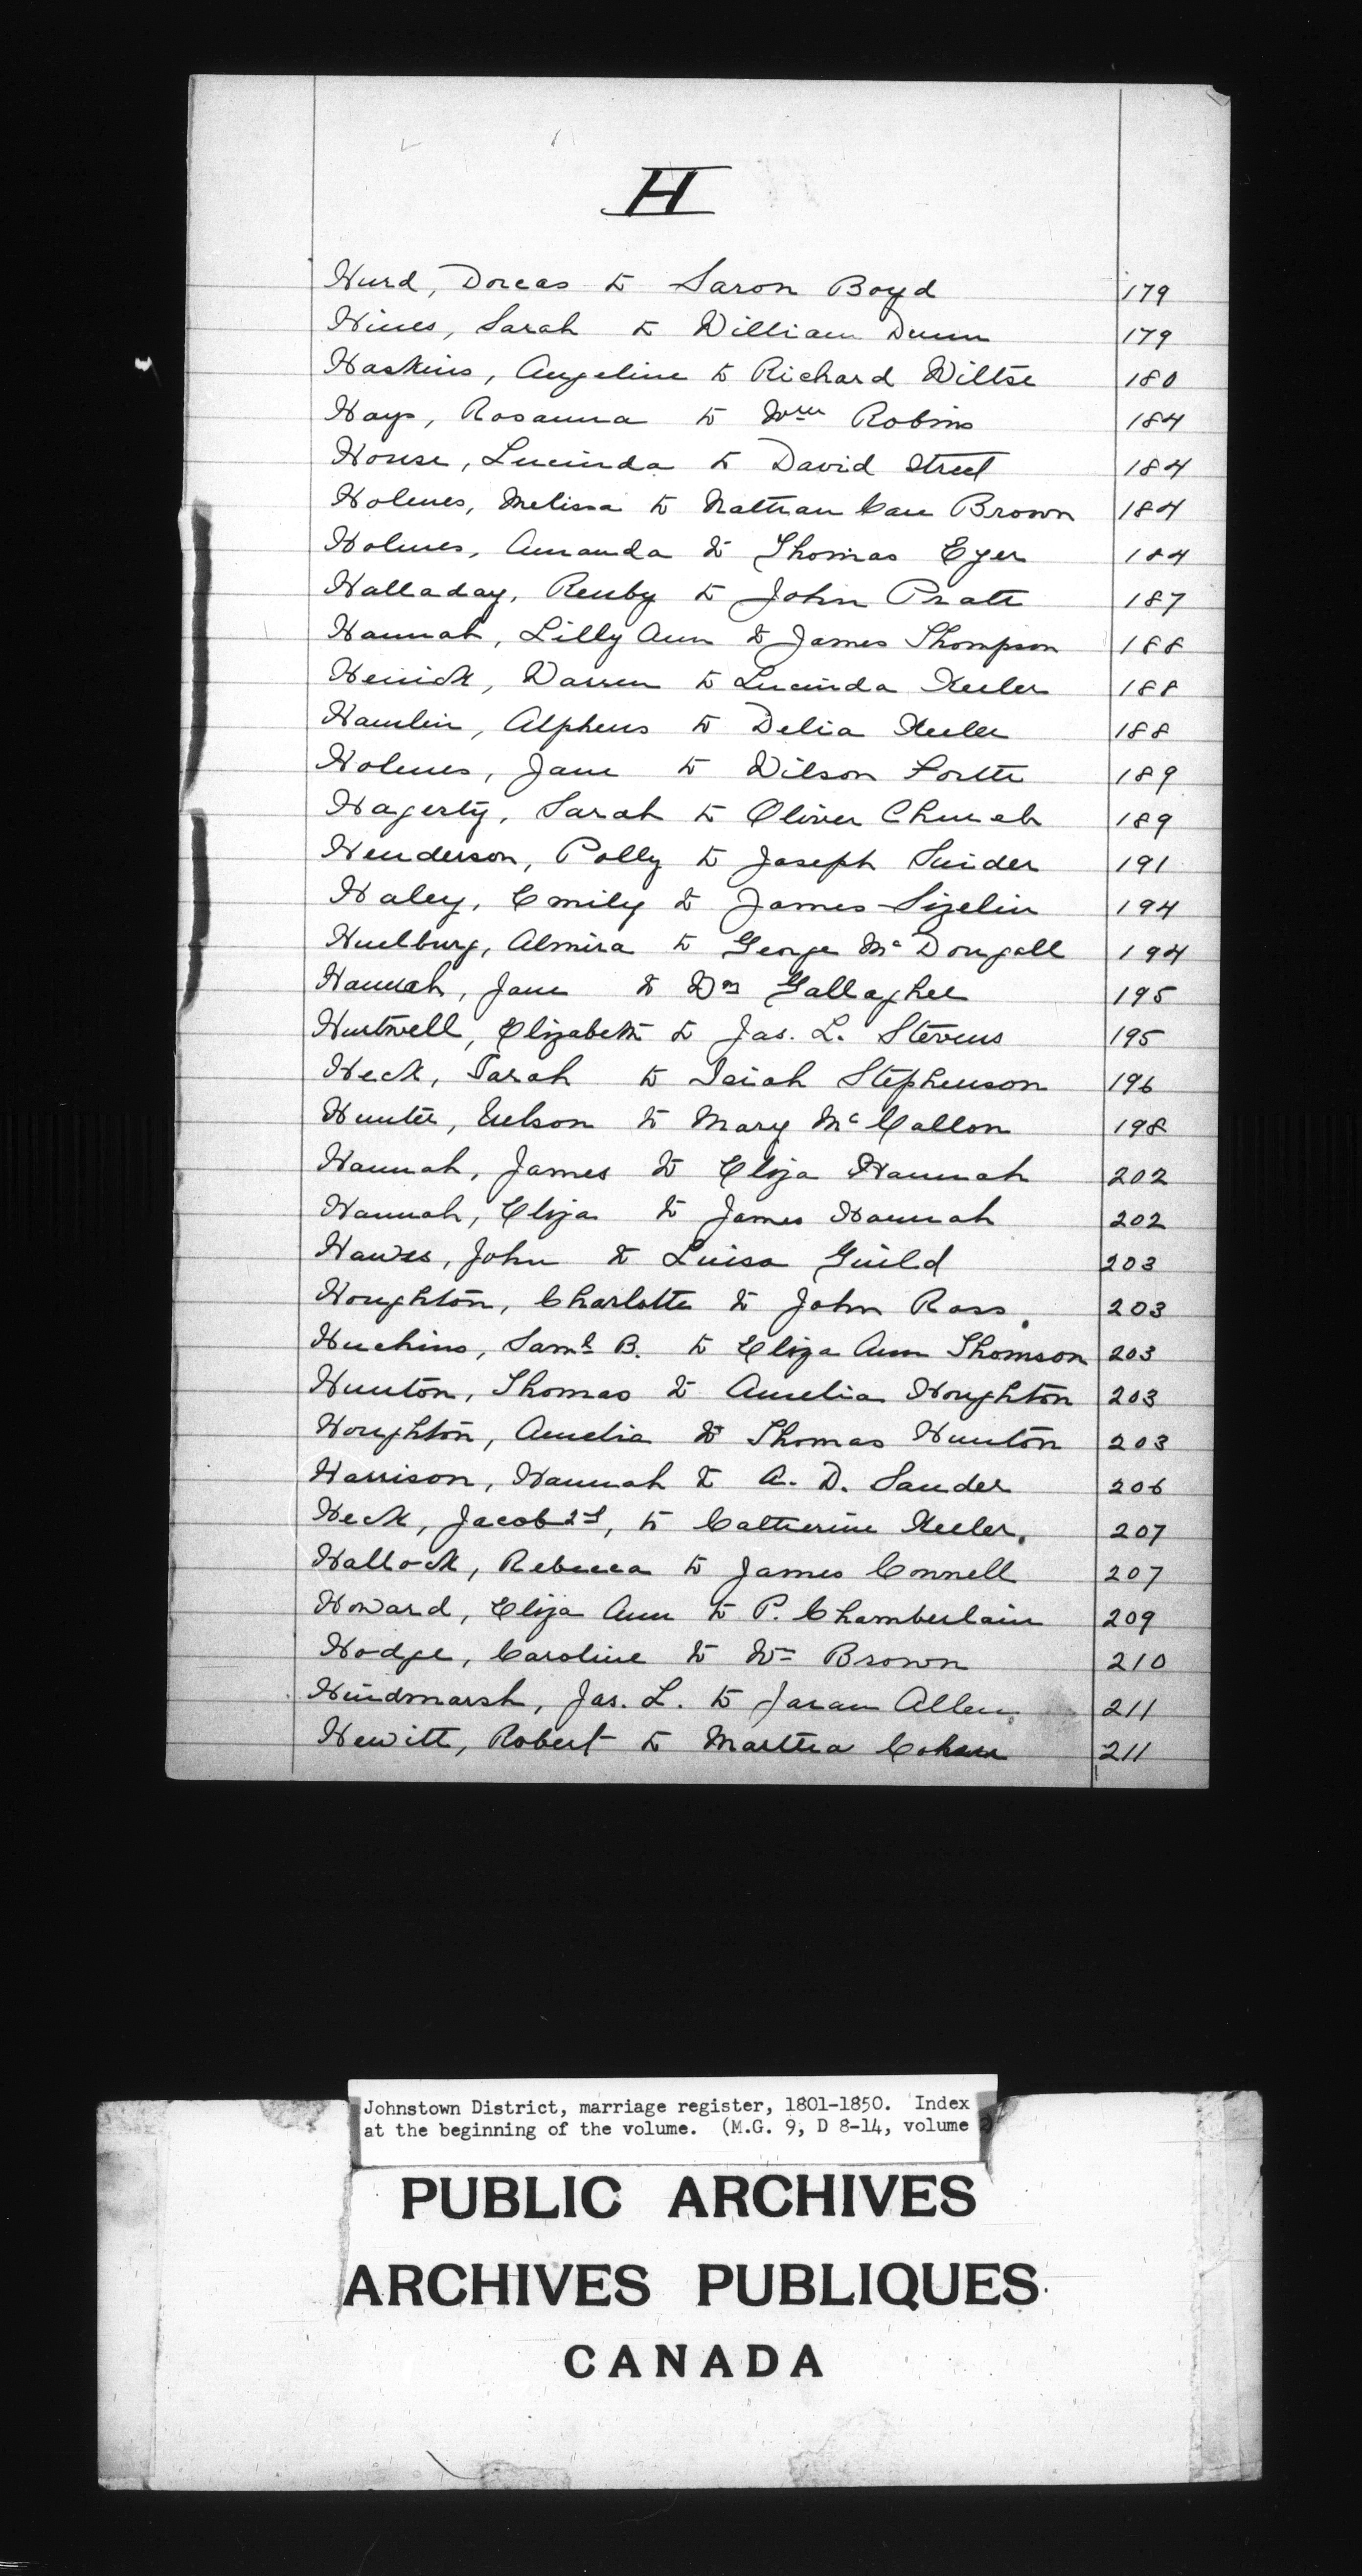 H
Hurd, Dorcas to Saron Boyd 179
Hines, Sarah to William Dunn 179
Haskins, Angeline to Richard Wiltse 180
Hays, Rosanna to Wm Robins 184
House, Lucinda to David Street 184
Holmes, Melissa to Nathan Brown 184
Holmes, Amanda to Thomas Eyer 184
Halladay, Reuby to John Pratt 187
Hannah, Lilly Ann to James Thompson 188
Warren to Lucinda Keeler 188
Hamlin, Alpheus to Delia Keeler 188
Holmes, Jane to Wilson 189
Hagerty, Sarah to Oliver Church 189
Henderson, Polly to Joseph Snider 191
Haley, Emily to James Sizelin 194
Hulburg, Almira to George McDougall 194
Hannah, Jane to Wm Gallagher 195
Hurtwell, Elizabeth to Jas. L. Stevens 195
Heck, Sarah to Isiah Stephenson 196
Hunter, Nelson to Mary McCallon 198
Hannah, James to Eliza Hannah 202
Hannah, Eliza to James Hannah 202
Hawes, John to Luisa Guild 203
Houghton, Charlotte to John Ross. 203
Huchins, Saml B. to Eliza Ann Thomson 203
Hunton, Thomas to Amelia Houghton 203
Houghton, Amelia to Thomas Hunton 203
Harrison, Hannah to A. D. Sander 206
Heck, Jacob to Catherine Keeler. 207
Hallock, Rebecca to James Connell 207
Howard, Eliza Ann to P. Chamberlain 209
Hodge, Caroline to Wm Brown 210
Hindmarsh, Jas. L. to Allen 211
Hewitt, Robert to Martha 211
Johnstown District, marriage register, 1801-1850. Index
at the beginning of the volume. (M.G. 9, D 8-14, volume
PUBLIC ARCHIVES
ARCHIVES PUBLIQUES
CANADA